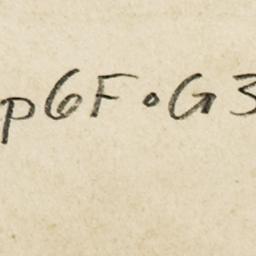 p6F•G3